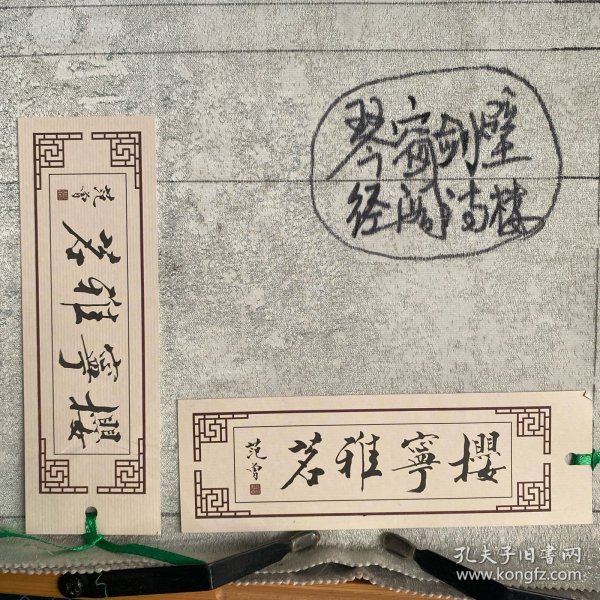 琴窗剑壁
经阁诗楼
攖寧雅茗
范曾
攖寧雅茗
范曾
孔夫子旧书网
www.kongfz.com